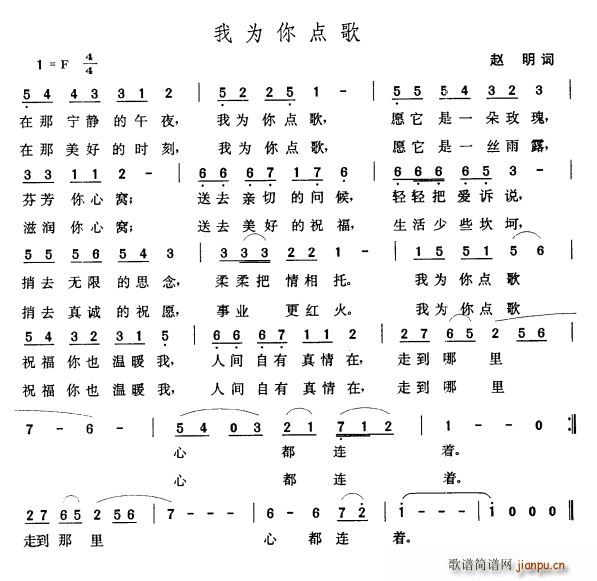 我为你点歌
1=F 4/4
赵 明词
5 4 4 3 3 1 2 | 5 2 2 5 1 - | 5 5 4 3 2 5 |
在那宁静的午夜, 我为你点歌, 愿它是一朵玫瑰,
在那美好的时刻, 我为你点歌, 愿它是一丝雨露,
3 3 1 1 2 - | 6 6 6 7 1 7 6 | 6 6 6 6 5 3 - |
芬芳你心窝; 送去亲切的问候, 轻轻把爱诉说,
滋润你心窝; 送去美好的祝福, 生活少些坎坷,
5 5 5 6 5 4 3 | 3 3 3 2 2 - | 1 2 5 1 5 6 |
捎去无限的思念, 柔柔把情相托。 我为你点歌
捎去真诚的祝愿, 事业更红火。 我为你点歌
5 4 3 2 3 1 5 | 6 6 6 7 1 1 2 | 2 7 6 5 2 5 6 |
祝福你也温暖我, 人间自有真情在, 走到哪里
祝福你也温暖我, 人间自有真情在, 走到哪里
7 - 6 - | 5 4 0 3 2 1 7 1 2 | 1 - - 0 :||
心都连着。
心都连着。
2 7 6 5 2 5 6 | 7 - - - | 6 - 6 7 2 | 1 - - - | 1 0 0 0 ||
走到那里 心都连着。
歌谱简谱网
jianpu.cn